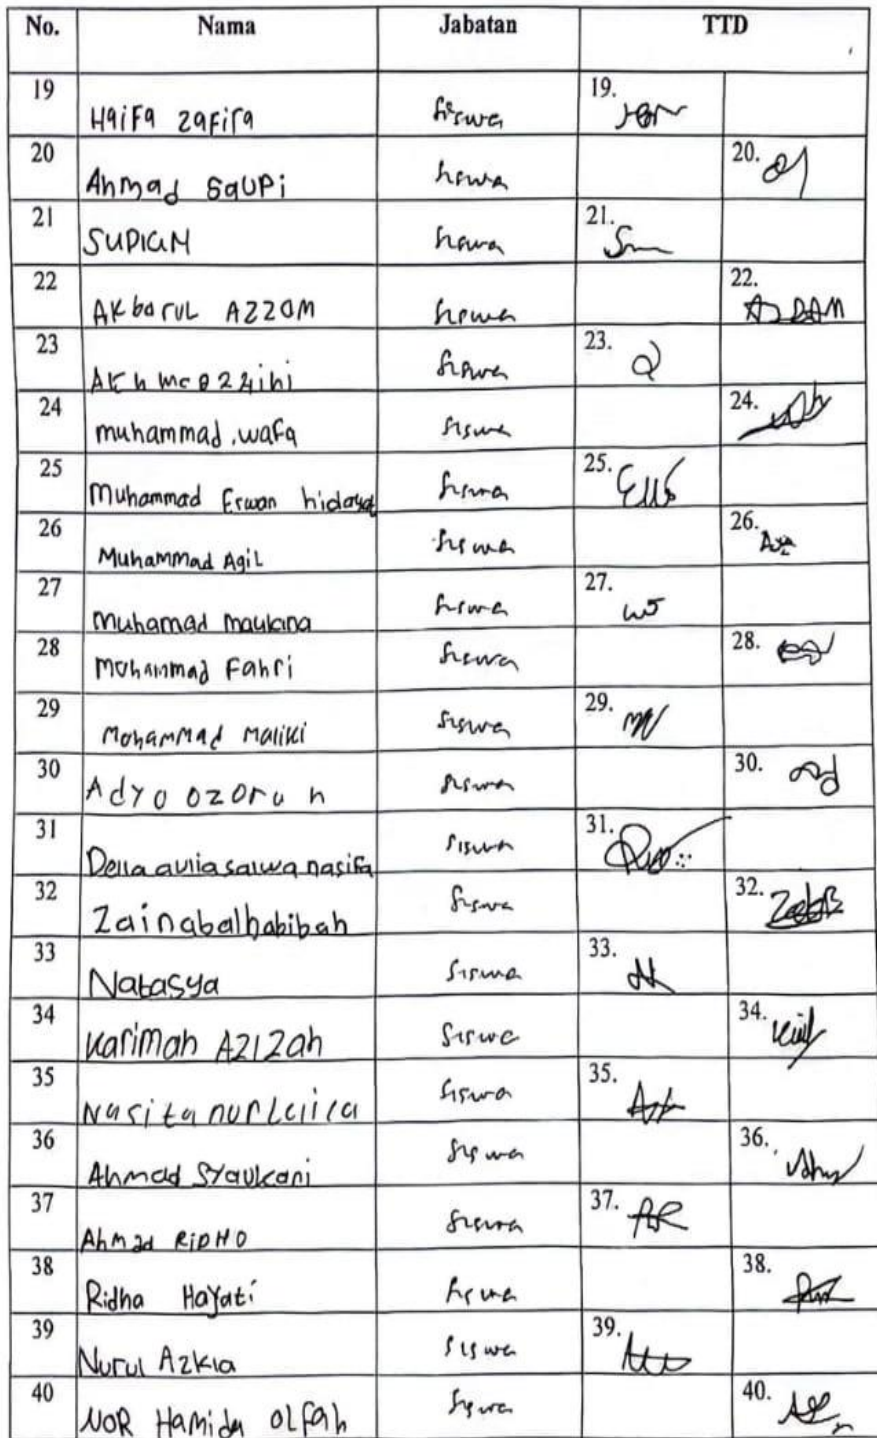 No. Nama Jabatan TTD
19 Haifa zafira Siswa 19.
20 Ahmad Saupi Siswa 20.
21 SUPIAN Siswa 21.
22 AKbarul AZZAM Siswa 22.
23 Siswa 23.
24 muhammad wafa Siswa 24.
25 Muhammad Erwan hidayat Siswa 25.
26 Muhammad Agil Siswa 26.
27 Muhamad maulana Siswa 27.
28 Mohammad Fahri Siswa 28.
29 Mohammad Maliki Siswa 29.
30 Siswa 30.
31 Della aulia salwa nasifa Siswa 31.
32 Zainabalhabibah Siswa 32.
33 Natasya Siswa 33.
34 Karimah AZIZah Siswa 34.
35 Siswa 35.
36 Ahmad Syaukani Siswa 36.
37 Ahmad RIDHO Siswa 37.
38 Ridha Hayati Siswa 38.
39 Nurul Azkia Siswa 39.
40 NOR Hamida olfah Siswa 40.